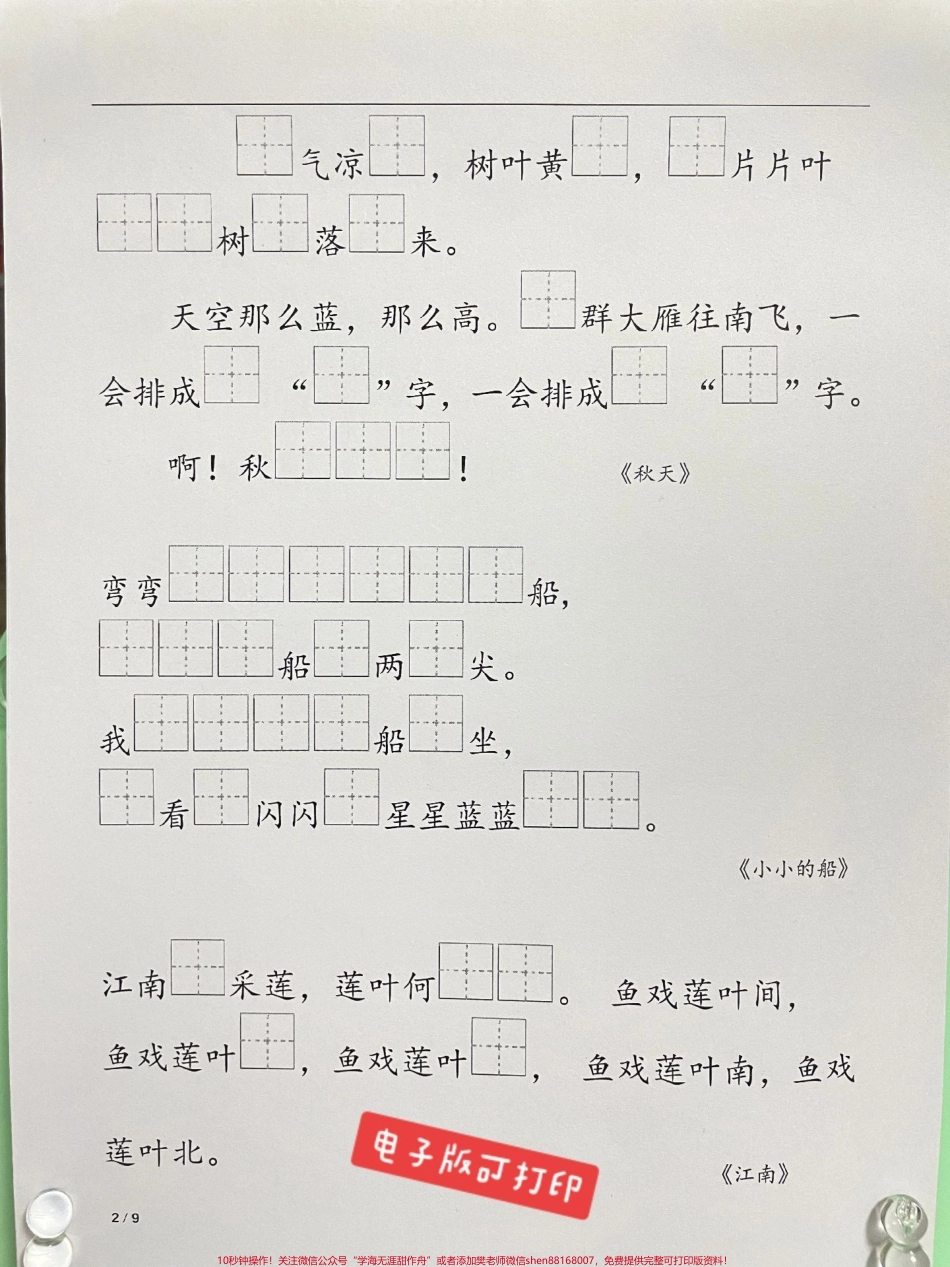 气凉，树叶黄，片片叶
树落来。
天空那么蓝，那么高。群大雁往南飞，一
会排成“”字，一会排成“”字。
啊！秋！ 《秋天》
弯弯船，
船两尖。
我船坐，
看闪闪星星蓝蓝。
《小小的船》
江南采莲，莲叶何。 鱼戏莲叶间，
鱼戏莲叶，鱼戏莲叶， 鱼戏莲叶南，鱼戏
莲叶北。
《江南》
电子版可打印
2 / 9
10秒钟操作！关注微信公众号“学海无涯甜作舟”或者添加樊老师微信shen88168007，免费提供完整可打印版资料！